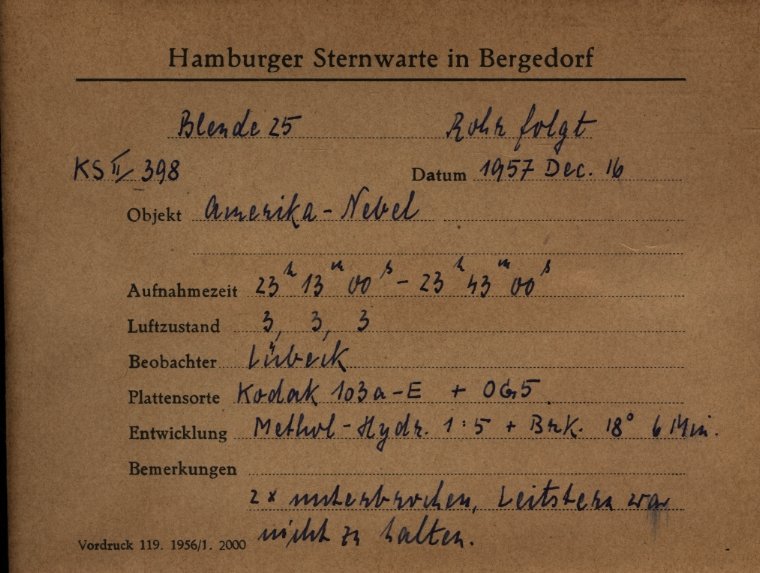 Hamburger Sternwarte in Bergedorf
Blende 25 Rohr folgt
KS II/398 Datum 1957 Dec. 16
Objekt Amerika-Nebel
Aufnahmezeit 23h 13m 00s - 23h 43m 00s
Luftzustand 3, 3, 3
Beobachter Lübeck
Plattensorte Kodak 103a-E + OG5
Entwicklung Methol-Hydr. 1:5 + Brk. 18° 6 Min.
Bemerkungen
2x unterbrochen, Leitstern war
nicht zu halten.
Vordruck 119. 1956/1. 2000